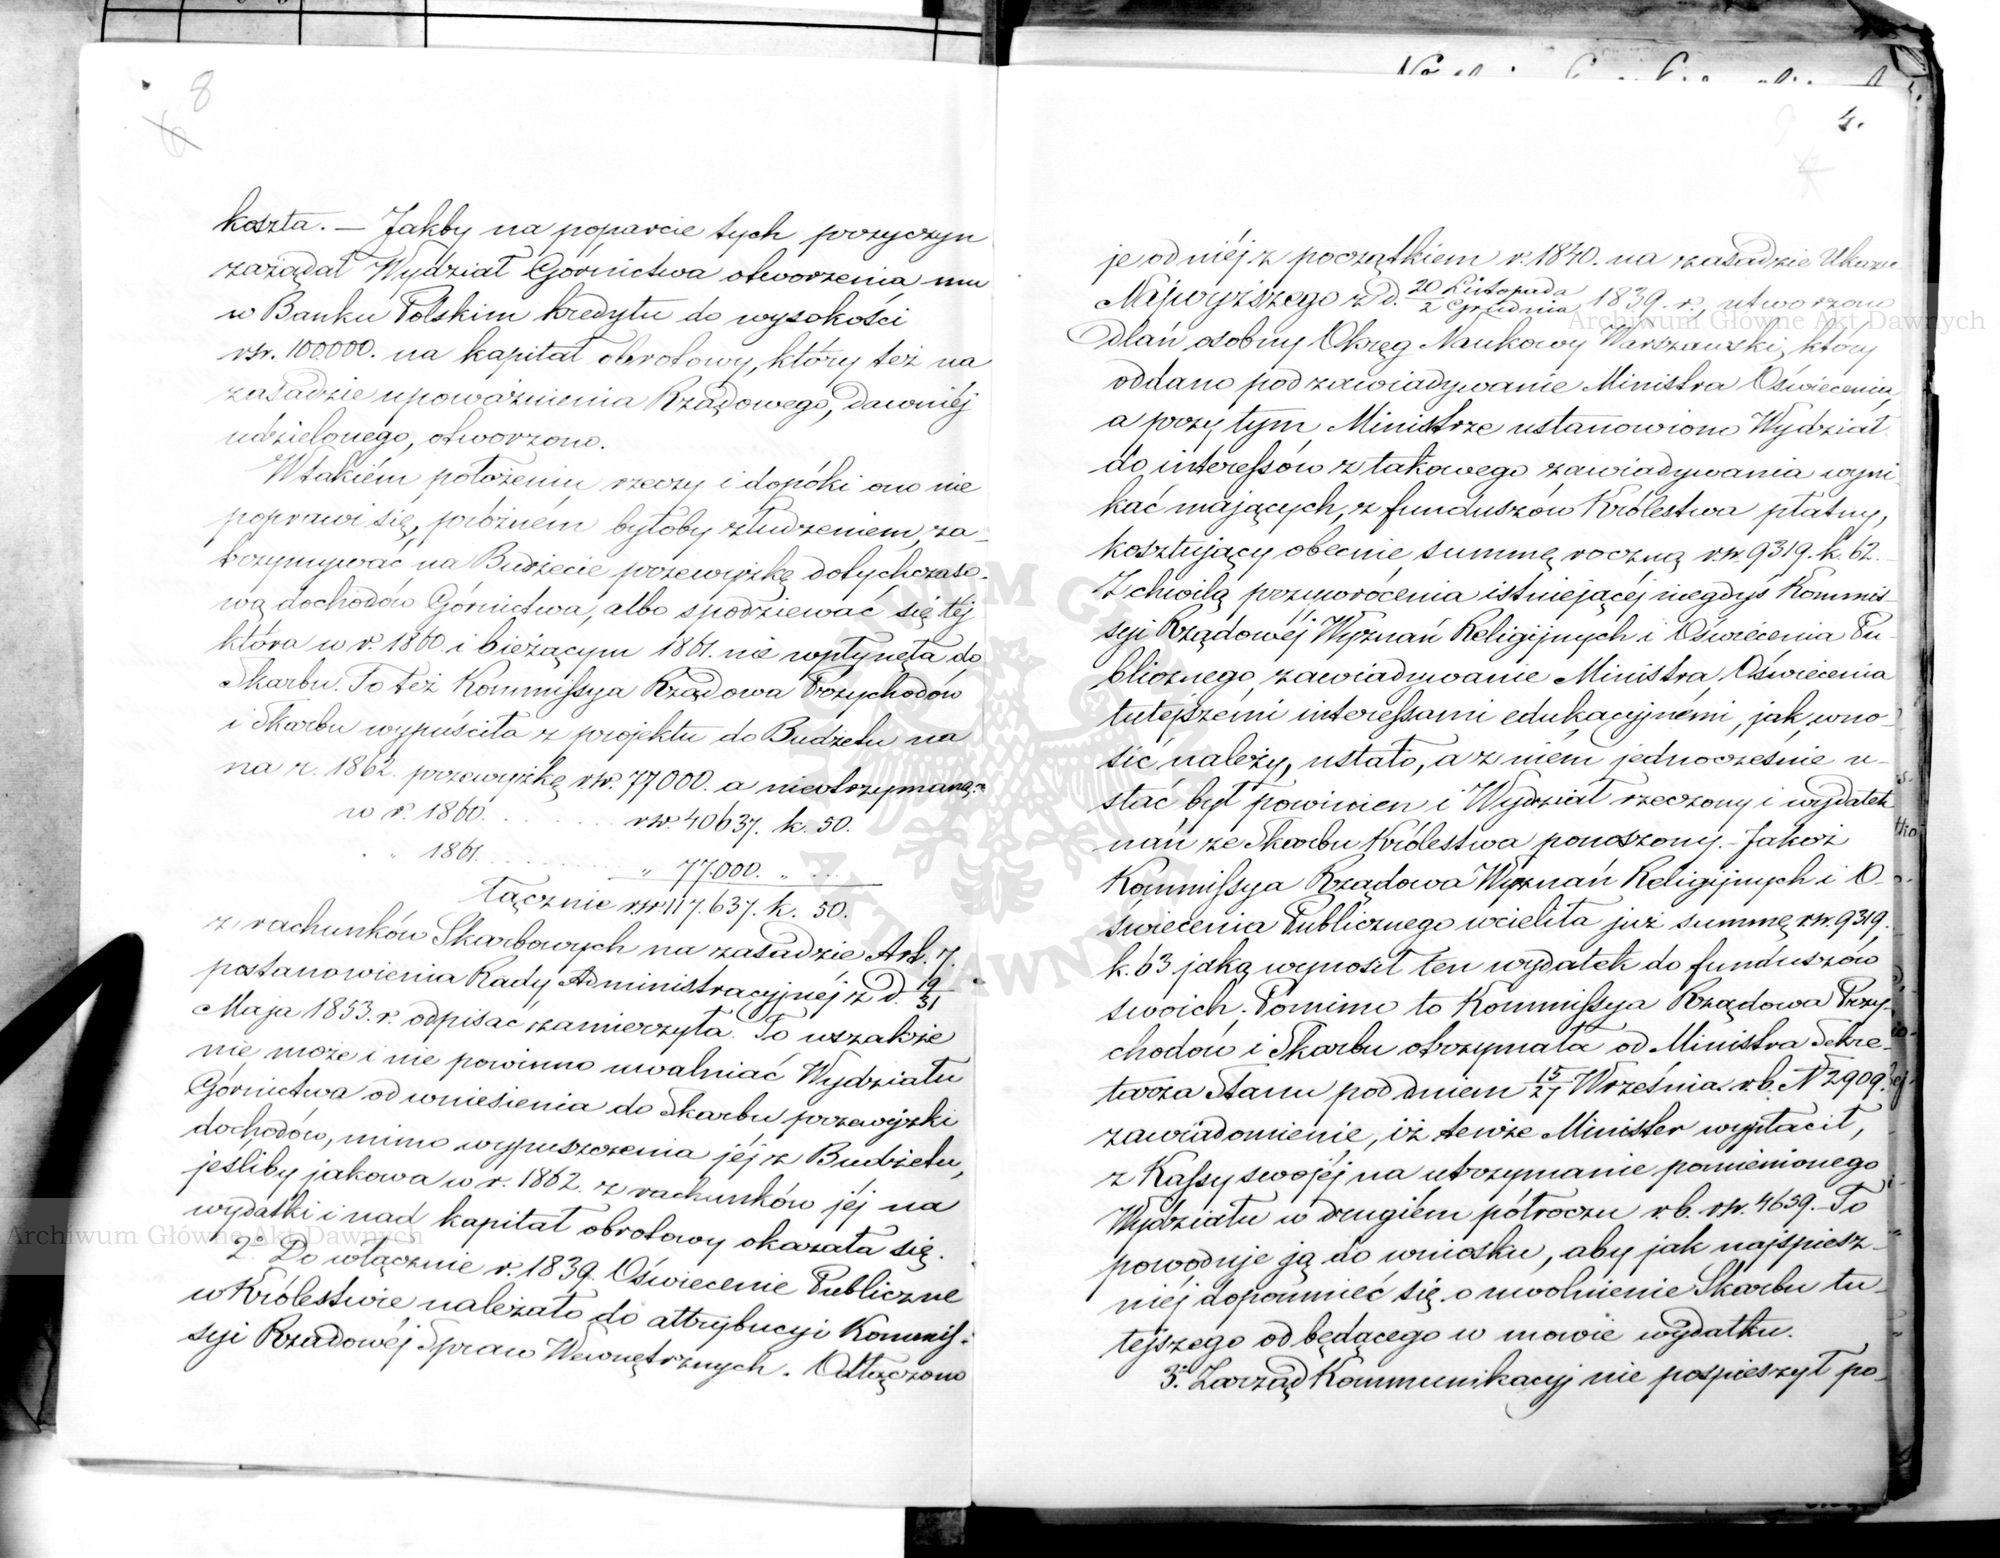 8
6
koszta. — Jakby na poparcie tych przyczyn
zażądał Wydział Górnictwa otworzenia mu
w Banku Polskim kredytu do wysokości
rsr. 100000. na kapitał obrotowy, który też na
zasadzie upoważnienia Rządowego, dawniéj
udzielonego, otworzono.
W takiém położeniu rzeczy i dopóki ono nie
poprawi się, próżném byłoby złudzeniem, za-
trzymywać na Budżecie przewyżkę dotychczaso-
wą dochodów Górnictwa, albo spodziewać się téj
która w r. 1860. i bieżącym 1861. nie wpłynęła do
Skarbu. To też Kommissya Rządowa Przychodów
i Skarbu wypuściła z projektu do Budżetu na
na r. 1862. przewyżkę rsr. 77000. a nieotrzymaną:
w r. 1860. . . . . . . rsr. 40637. k. 50.
„ „ 1861. . . . . . . „ 77.000. „ . . .
łącznie rsr. 117.637. k. 50.
z rachunków Skarbowych na zasadzie Art. 7.
postanowienia Rady Administracyjnéj z d. 19/31
Maja 1853. r. odpisać zamierzyła. To wszakże
nie może i nie powinno uwalniać Wydziału
Górnictwa od wniesienia do Skarbu przewyżki
dochodów, mimo wypuszczenia jéj z Budżetu,
jeśliby jakowa w r. 1862. z rachunków jéj na
wydatki i nad kapitał obrotowy okazała się.
2º Do włącznie r. 1839. Oświecenie Publiczne
w Królestwie należało do attrybucyi Kommis-
syi Rządowéj Spraw Wewnętrznych. Odłączono
4.
je od niéj z początkiem r. 1840. na zasadzie Ukazu
Najwyższego z d. 20 Listopada/2 Grudnia 1839. r., utworzono
dlań osobny Okręg Naukowy Warszawski, który
oddano pod zawiadywanie Ministra Oświecenia,
a przy tym Ministrze ustanowiono Wydział
do interessów z takowego zawiadywania wyni
kać mających, z funduszów Królestwa płatny,
kosztujący obecnie summę roczną rsr. 9319. k. 62.
Z chwilą przywrócenia istniejącéj niegdyś Kommis
syi Rządowéj Wyznań Religijnych i Oświecenia Pu-
blicznego, zawiadywanie Ministra Oświecenia
tutejszémi interessami edukacyjnémi, jak wno-
sić należy, ustało, a z niém jednocześnie u-
stać był powinien i Wydział rzeczony i wydatek
nań ze Skarbu Królestwa ponoszony. - Jakoż
Kommissya Rządowa Wyznań Religijnych i O-
świecenia Publicznego wcieliła już summę rsr. 9319.
k. 63 jaką wynosił ten wydatek do funduszów
swoich. Pomimo to Kommissya Rządowa Przy-
chodów i Skarbu otrzymała od Ministra Sekre-
tarza Stanu pod dniem 15/27 Września r. b. N 2909.
zawiadomienie, iż tenże Minister wypłacił,
z Kassy swojéj na utrzymanie pomienionego
Wydziału w drugiém półroczu r. b. rsr. 4659. - To
powoduje ją do wniosku, aby jak najspiesz-
niéj dopomnieć się o uwolnienie Skarbu tu-
tejszego od będącego w mowie wydatku.
3º Zarząd Kommunikacyj nie pospieszył po-
Archiwum Główne Akt Dawnych
Archiwum Główne Akt Dawnych